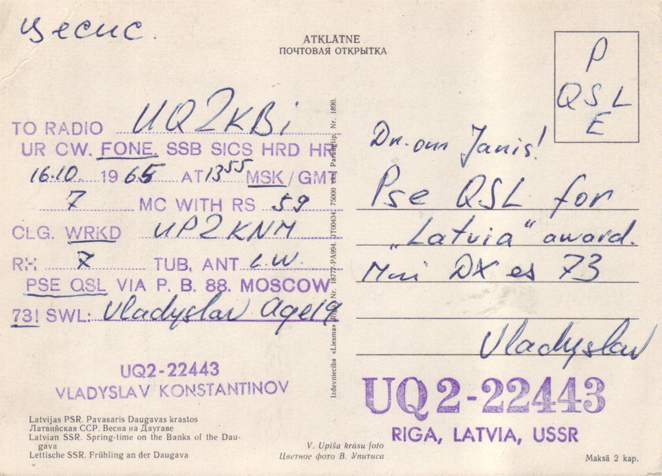 цесис.
ATKLĀTNE
ПОЧТОВАЯ ОТКРЫТКА
P
QSL
E
TO RADIO UQ2KBi
UR CW. FONE, SSB SICS HRD HR
16.10. 1965 AT 13 55 MSK/GMT
7 MC WITH RS 59
CLG. WRKD UP2KNM
RH 7 TUB, ANT L.W.
PSE QSL VIA P. B. 88. MOSCOW
73! SWL: Vladyslav Age 19
UQ2-22443
VLADYSLAV KONSTANTINOV
Latvijas PSR. Pavasaris Daugavas krastos
Латвийская ССР. Весна на Даугаве
Latvian SSR. Spring-time on the Banks of the Dau-
gava
Lettische SSR. Frühling an der Daugava
Izdevniecība «Liesma»
Dr. om Janis!
Pse QSL for
„Latvia" award.
Mni DX es 73
Vladyslav
UQ2-22443
RIGA, LATVIA, USSR
V. Upīša krāsu foto
Цветное фото В. Упитиса
Maksā 2 kap.